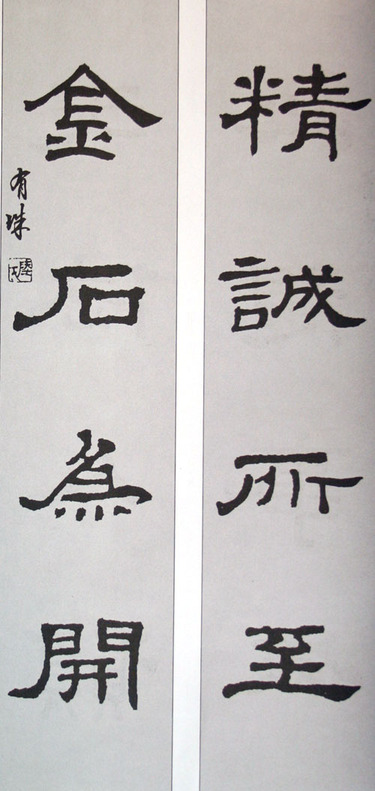 精誠所至
金石為開
有珠